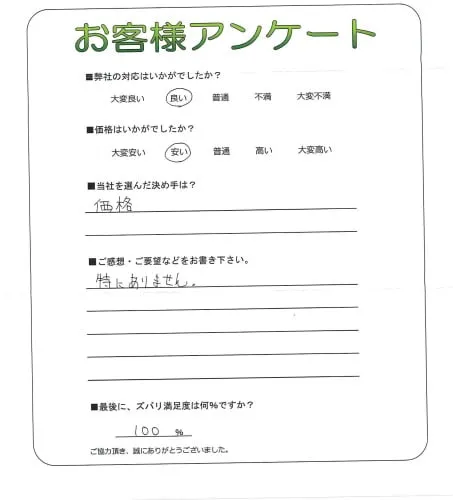 お客様アンケート
■弊社の対応はいかがでしたか？
大変良い 良い 普通 不満 大変不満
■価格はいかがでしたか？
大変安い 安い 普通 高い 大変高い
■当社を選んだ決め手は？
価格
■ご感想・ご要望などをお書き下さい。
特にありません。
■最後に、ズバリ満足度は何％ですか？
100 ％
ご協力頂き、誠にありがとうございました。